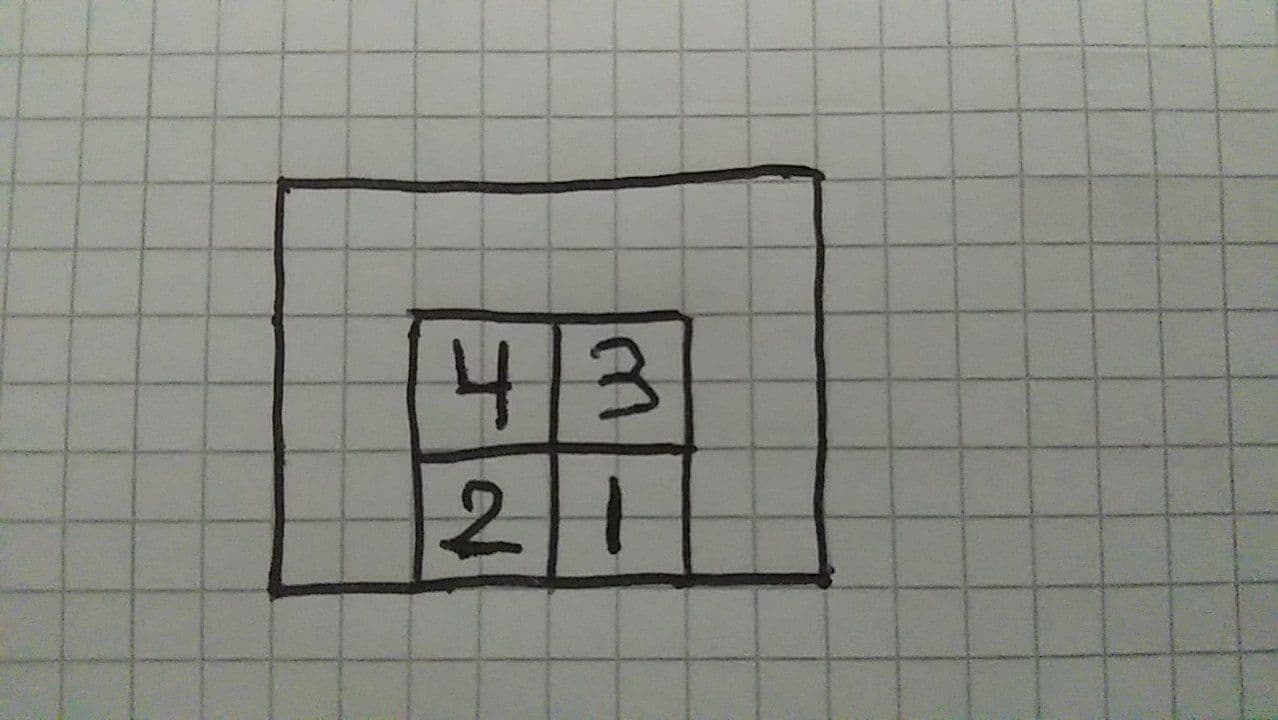 4 3
2 1